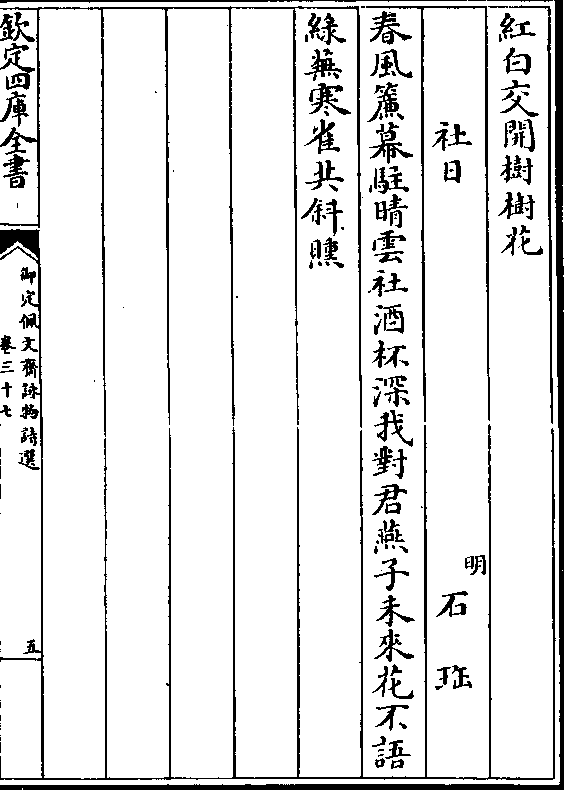 紅白交開樹樹花
社日
明
石珤
春風簾幕駐晴雲社酒杯深我對君燕子未來花不語
綠蕪寒雀共斜曛
欽定四庫全書
御定佩文齋詠物詩選
卷三十七
五